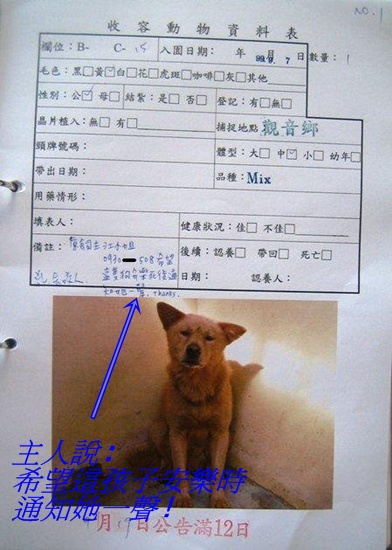 NO. 1
收容動物資料表
欄位：B- C- 15 入園日期： 年 月 7 日 數量： 1
毛色：黑□黃☑白□花□虎斑□咖啡□灰□其他
性別：公☑母□ 結紮：是□ 否□ 登記：有□無□
晶片植入：無□ 有□ 捕捉地點 觀音鄉
頸牌號碼： 體型：大□ 中☑小□ 幼年□
帶出日期： 品種：Mix
用藥情形：
填表人： 健康狀況：佳□ 不佳□
備註： 後續：認養□ 帶回□ 死亡□
0930 508 希望
日期： 認養人：
一聲. Thanks.
主人說：
希望這孩子安樂時
通知她一聲！
月 日公告滿12日